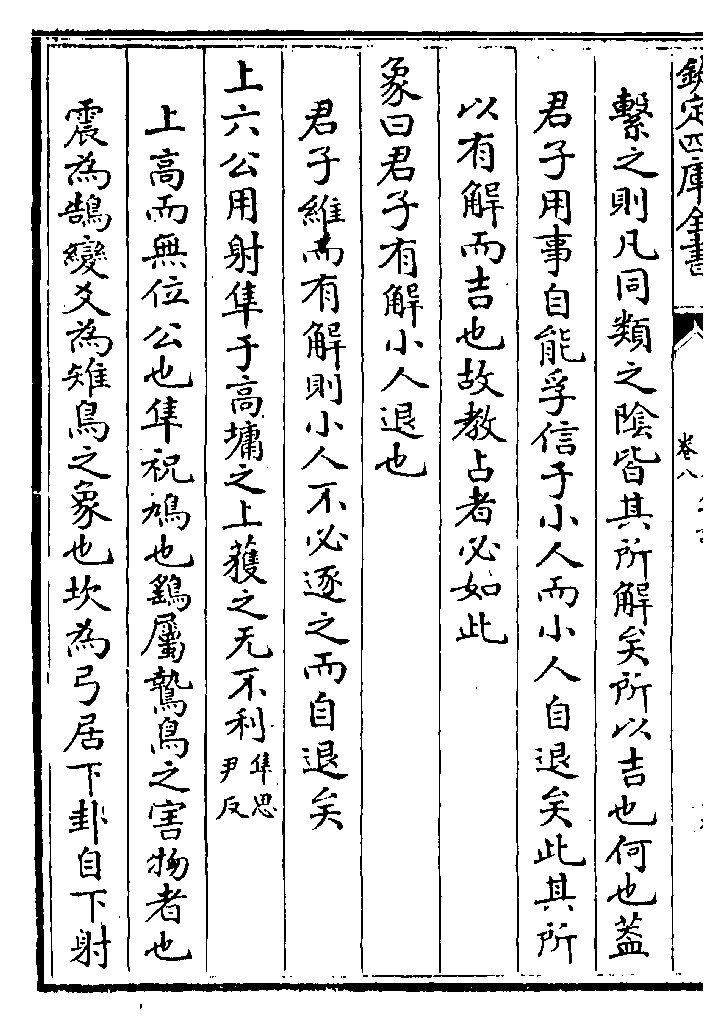 欽定四庫全書
卷八
繫之則凡同類之陰皆其所解矣所以吉也何也葢
君子用事自能孚信于小人而小人自退矣此其所
以有解而吉也故教占者必如此
象曰君子有解小人退也
君子維而有解則小人不必逐之而自退矣
上六公用射隼于高墉之上𫉬之无不利隼思尹反
上髙而無位公也隼祝鳩也鷂屬鷙鳥之害物者也
震為鵠變爻為雉鳥之象也坎為弓居下卦自下射